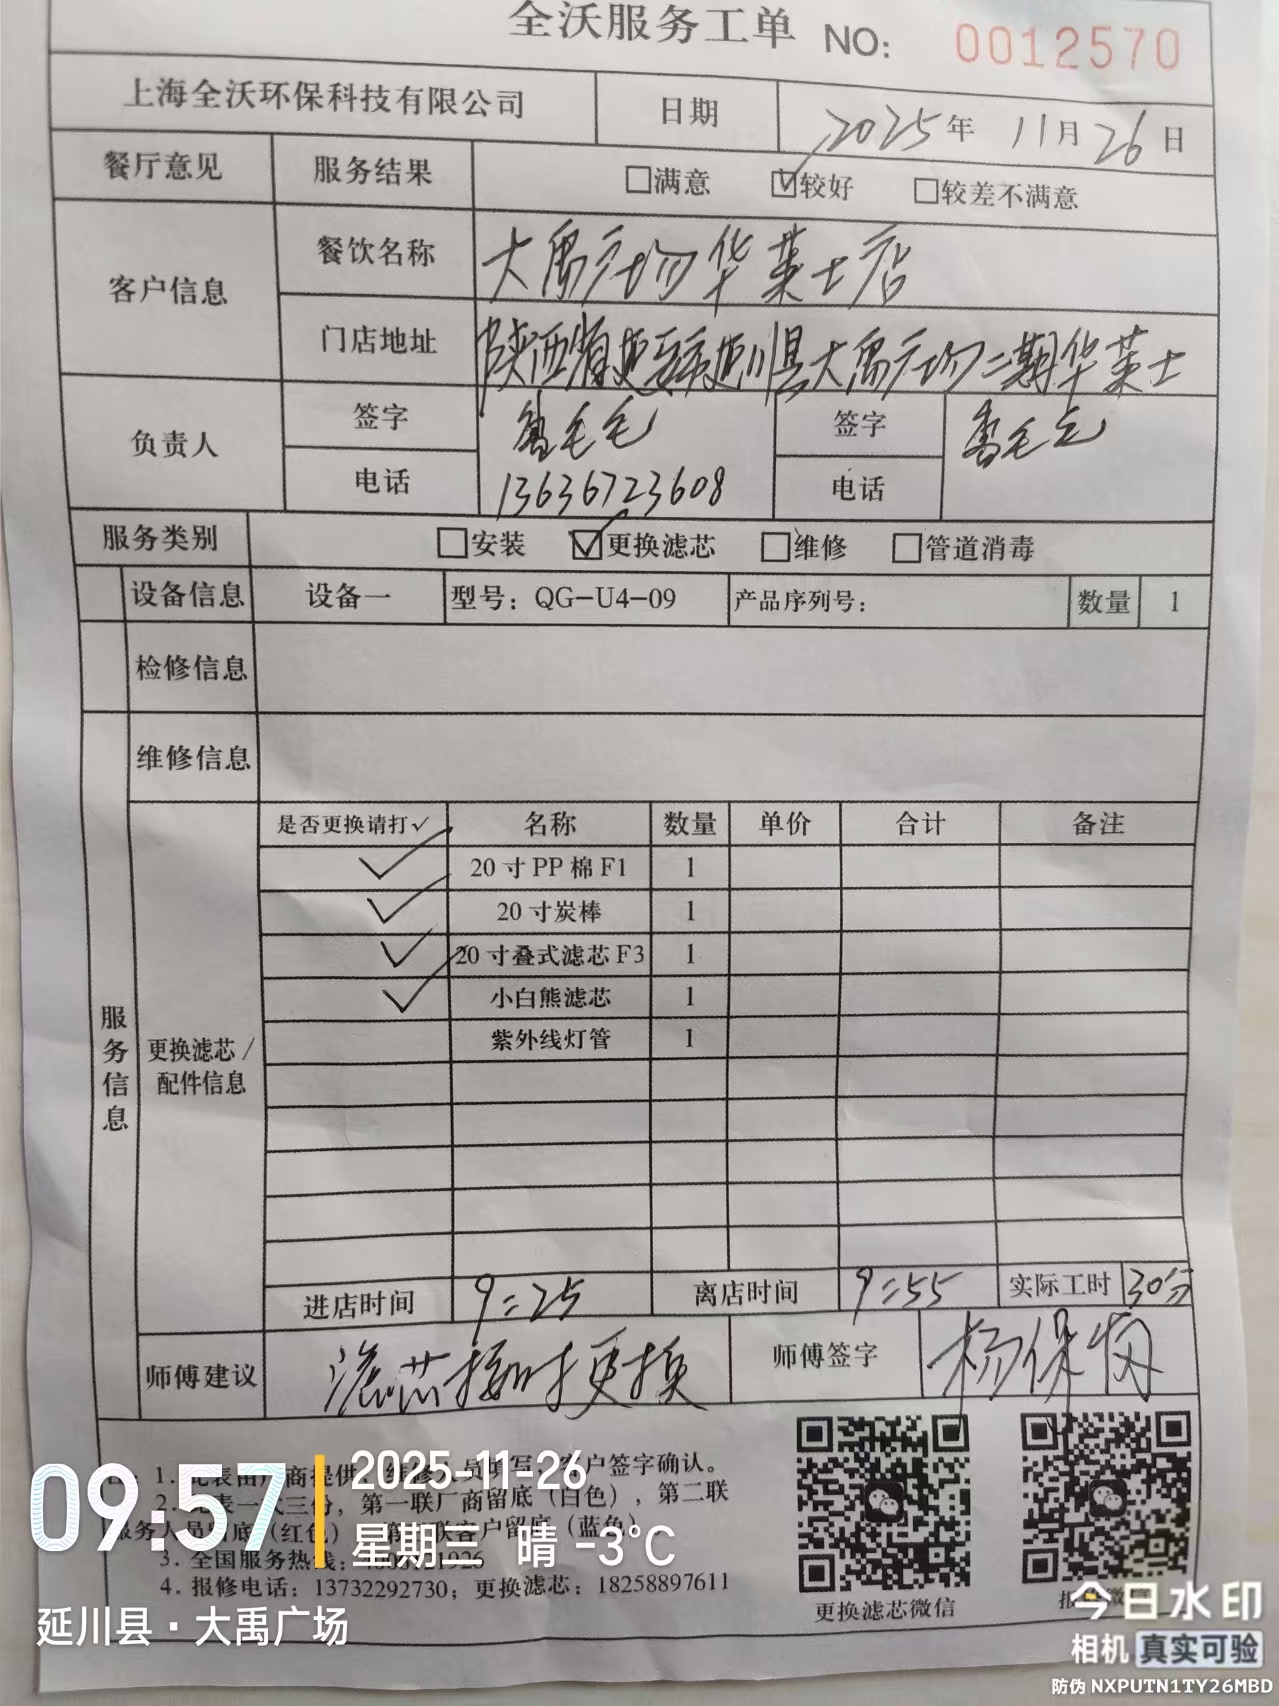 全沃服务工单 NO: 0012570
上海全沃环保科技有限公司 日期 2025年 11月 26日
餐厅意见 服务结果 □满意 ☑较好 □较差不满意
客户信息 餐饮名称 大禹广场华莱士店
门店地址 陕西省延安市延川县大禹广场二期华莱士
负责人 签字 毛毛 签字 毛毛
电话 13636723608 电话
服务类别 □安装 ☑更换滤芯 □维修 □管道消毒
设备信息 设备一 型号：QG-U4-09 产品序列号： 数量 1
检修信息
维修信息
服务信息
更换滤芯/配件信息
是否更换请打✓ 名称 数量 单价 合计 备注
✓ 20寸PP棉F1 1
✓ 20寸炭棒 1
✓ 20寸叠式滤芯F3 1
✓ 小白熊滤芯 1
紫外线灯管 1
进店时间 9:25 离店时间 9:55 实际工时 30分
师傅建议 滤芯按时更换 师傅签字 杨保
1. 此表由厂商提供，维修人员填写，客户签字确认。
2. 此表一式三份，第一联厂商留底（白色），第二联
服务人员留底（红色），第三联客户留底（蓝色）
3. 全国服务热线：
4. 报修电话：13732292730；更换滤芯：18258897611
更换滤芯微信
09:57
2025-11-26
星期三 晴 -3℃
延川县·大禹广场
今日水印
相机 真实可验
防伪 NXPUTN1TY26MBD